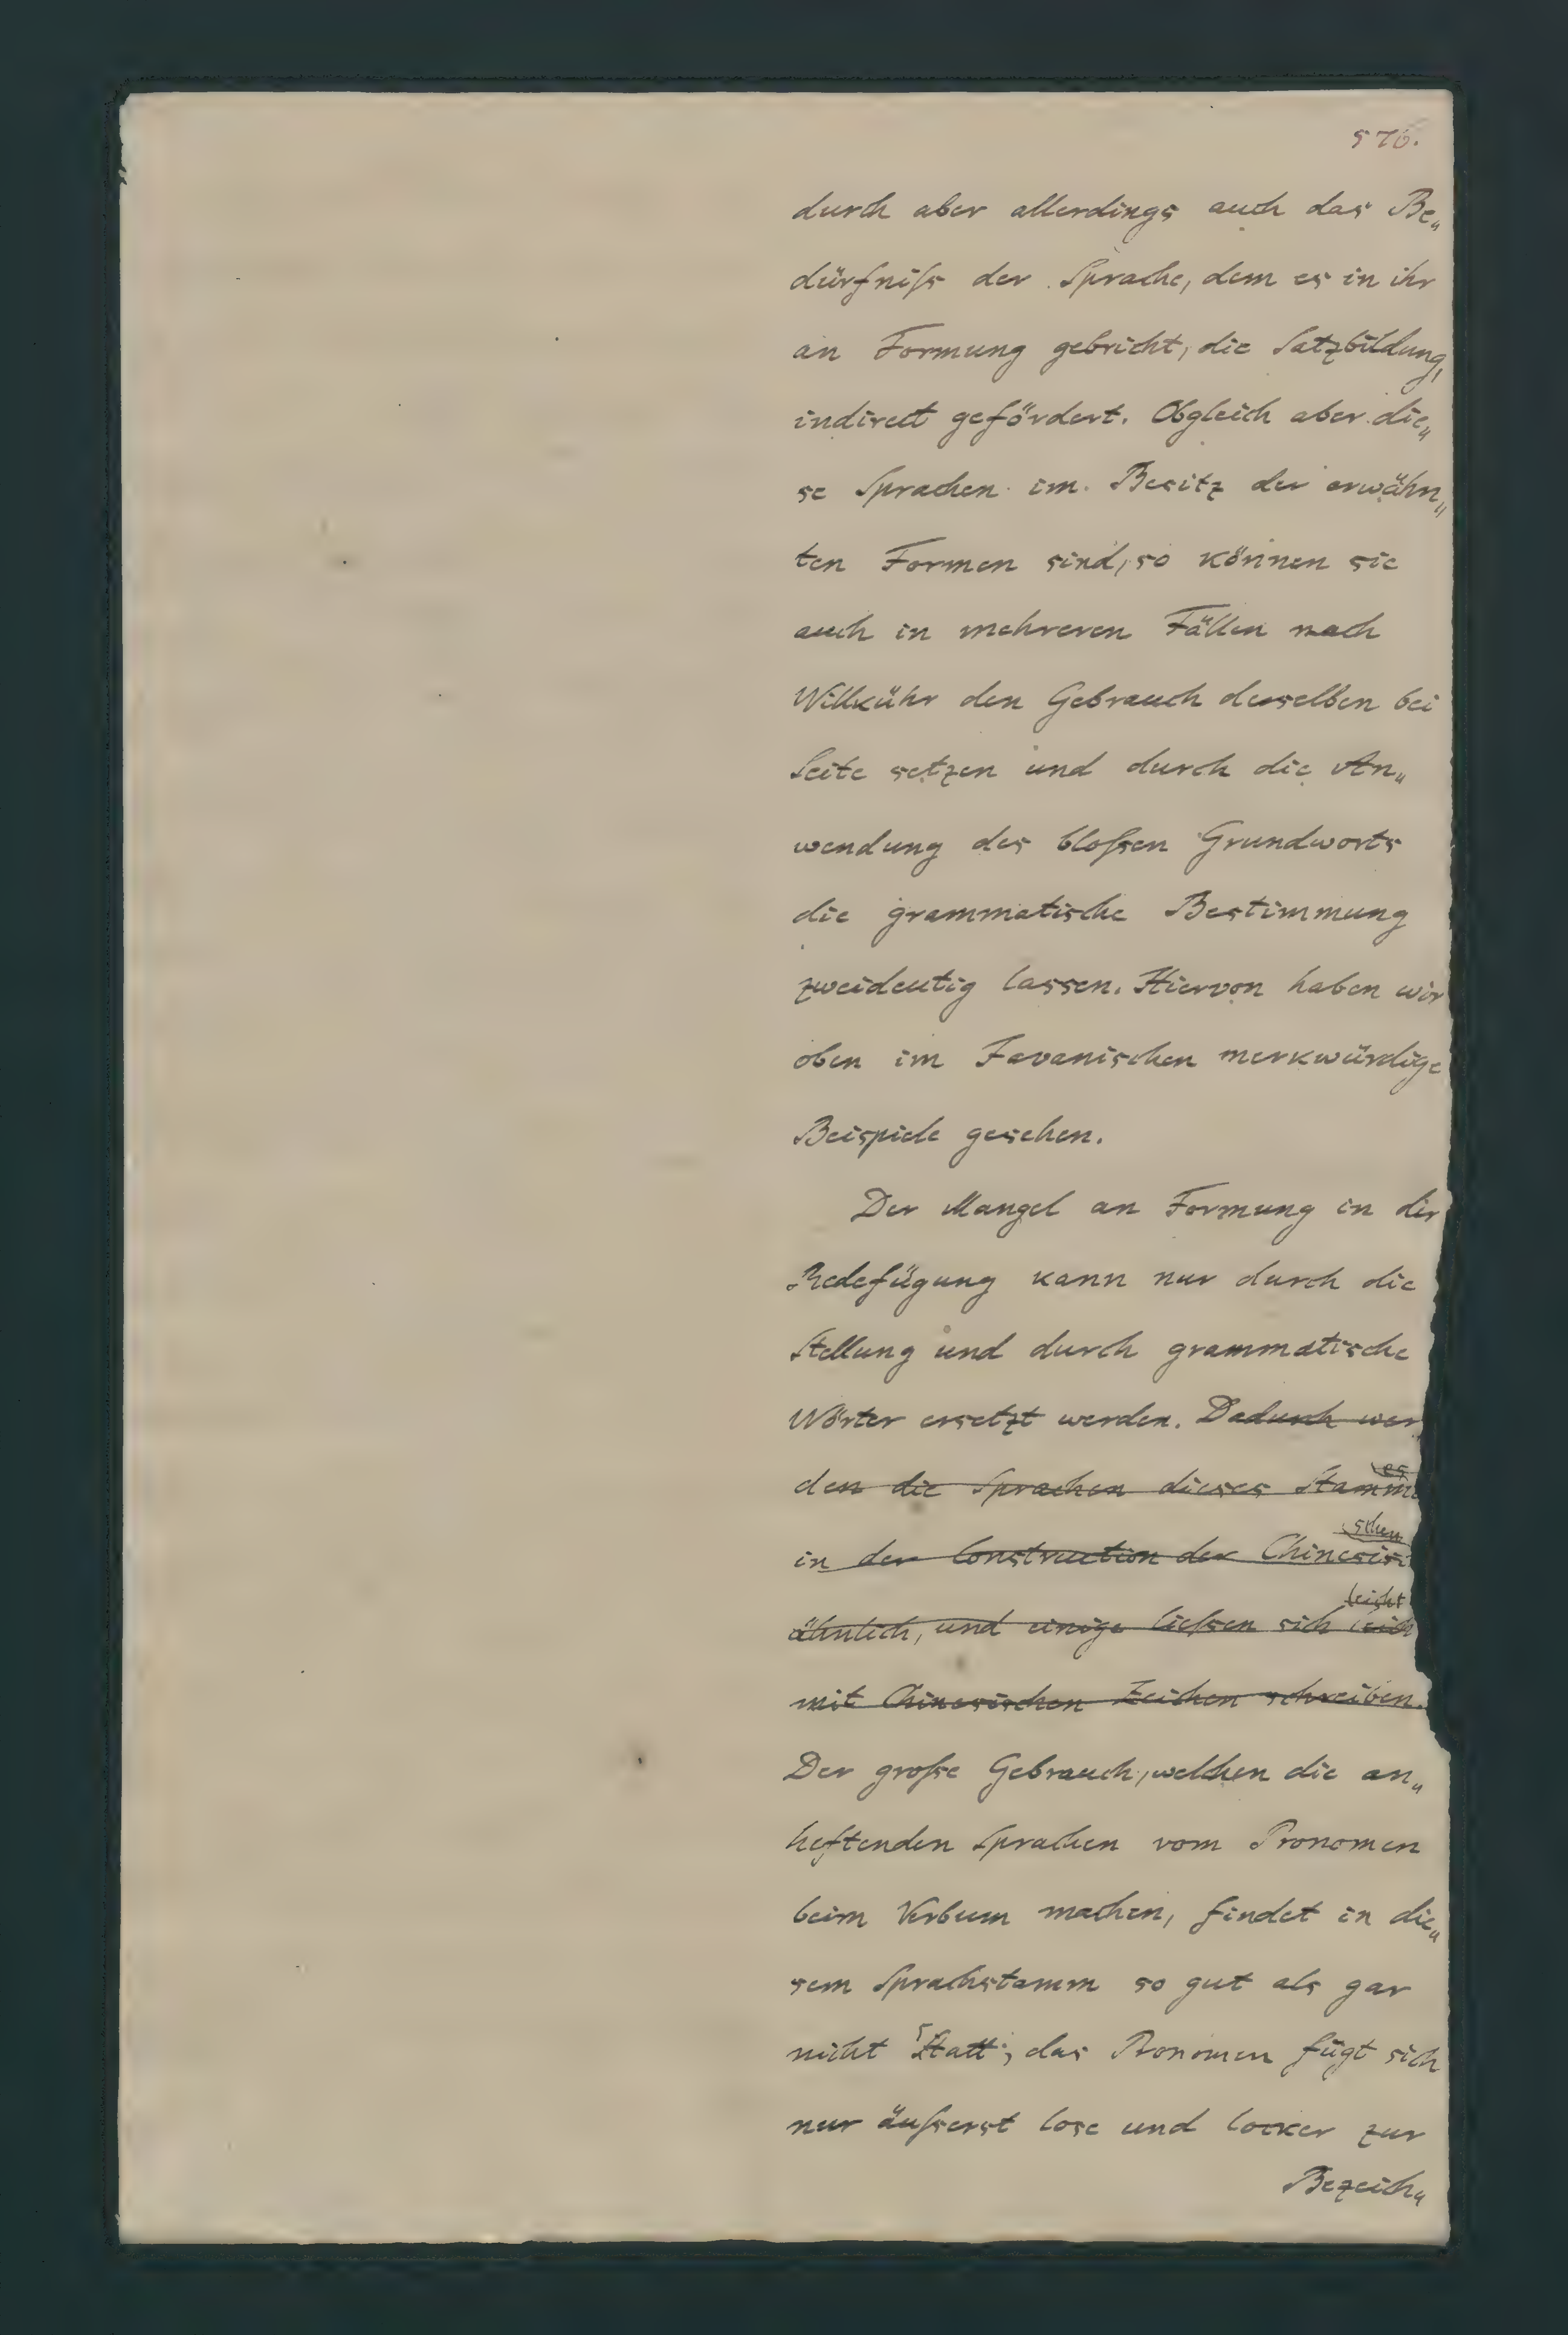 576.
durch aber allerdings auch das Be„
dürfniſs der Sprache, dem es in ihr
an Formung gebricht, die Satzbildung,
indirect gefördert. Obgleich aber die„
se Sprachen im Besitz der erwähn„
ten Formen sind, so können sie
auch in mehreren Fällen nach
Willkühr den Gebrauch derselben bei
Seite setzen und durch die An„
wendung des bloſsen Grundworts
die grammatische Bestimmung
zweideutig lassen. Hiervon haben wir
oben im Javanischen merkwürdige
Beispiele gesehen.
Der Mangel an Formung in der
Redefügung kann nur durch die
Stellung und durch grammatische
Wörter ersetzt werden. Dadurch wer„
es
den die Sprachen dieses Stamm
schen
in der Construction der Chinesis
leicht
ähnlich, und einige lieſsen sich leich
mit Chinesischen Zeichen schreiben.
Der groſse Gebrauch, welchen die an„
heftenden Sprachen vom Pronomen
beim Verbum machen, findet in die„
sem Sprachstamm so gut als gar
nicht Statt; das Pronomen fügt sich
nur äuſserst lose und locker zur
Bezeich„